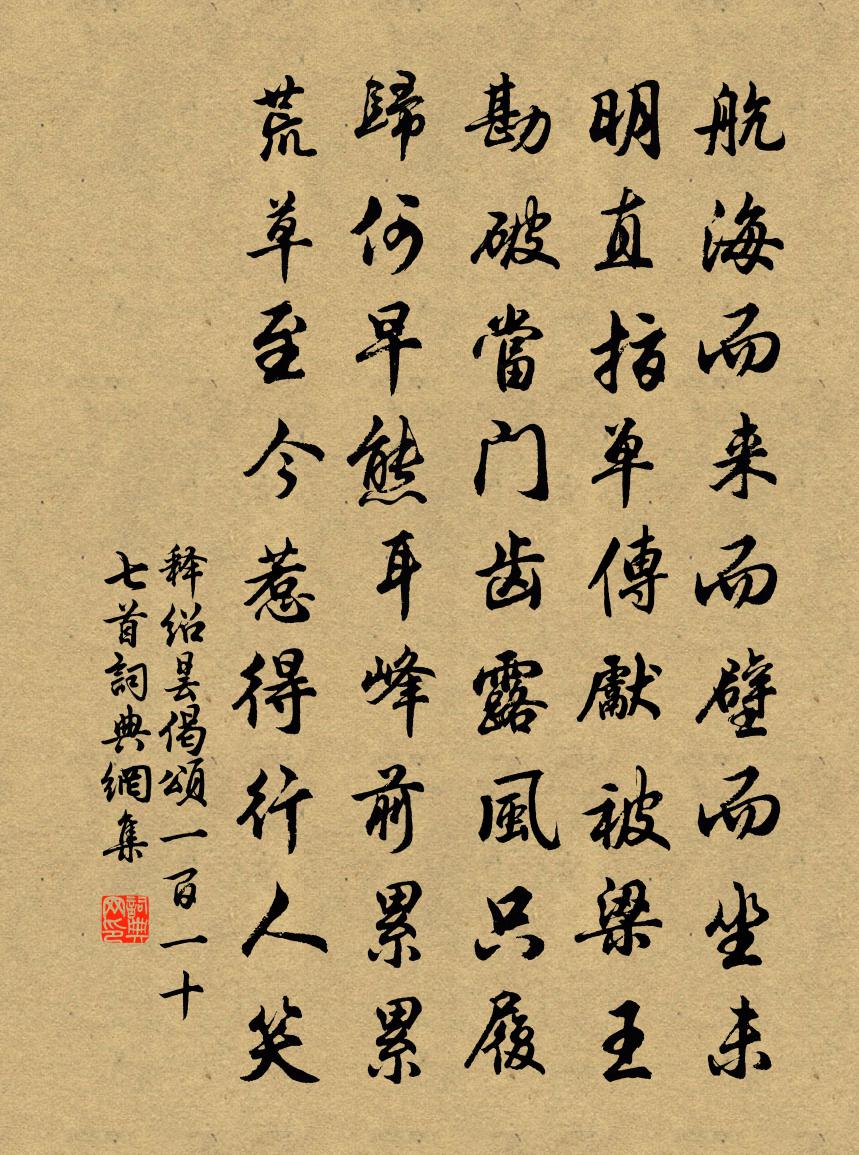 航海而来而壁而坐未
明直指单傳獻被梁王
勘破當门齿露風只履
歸何早熊耳峰前累累
荒草至今惹得行人笑
释绍昙偈頌一百一十
七首詞典網集
詞典
网印